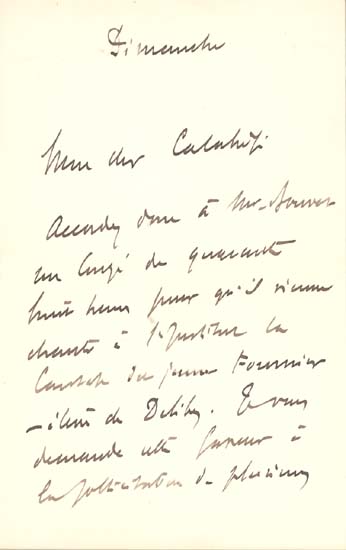 Dimanche
Mon cher Calabrési
Accordez donc à Mr Bouvet
un congé de quarante
huit heures pour qu'il vienne
chanter à l'Institut la
Cantate du jeune Fournier
– élève de Delibes. Je vous
demande cette faveur à
la sollicitation de plusieurs